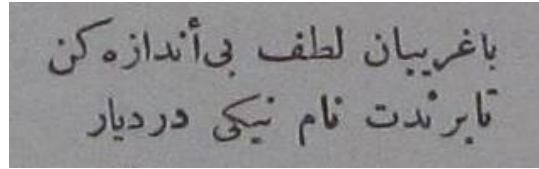 باغریبان لطف بی‌أندازه کن
تابرندت نام نیکی در دیار